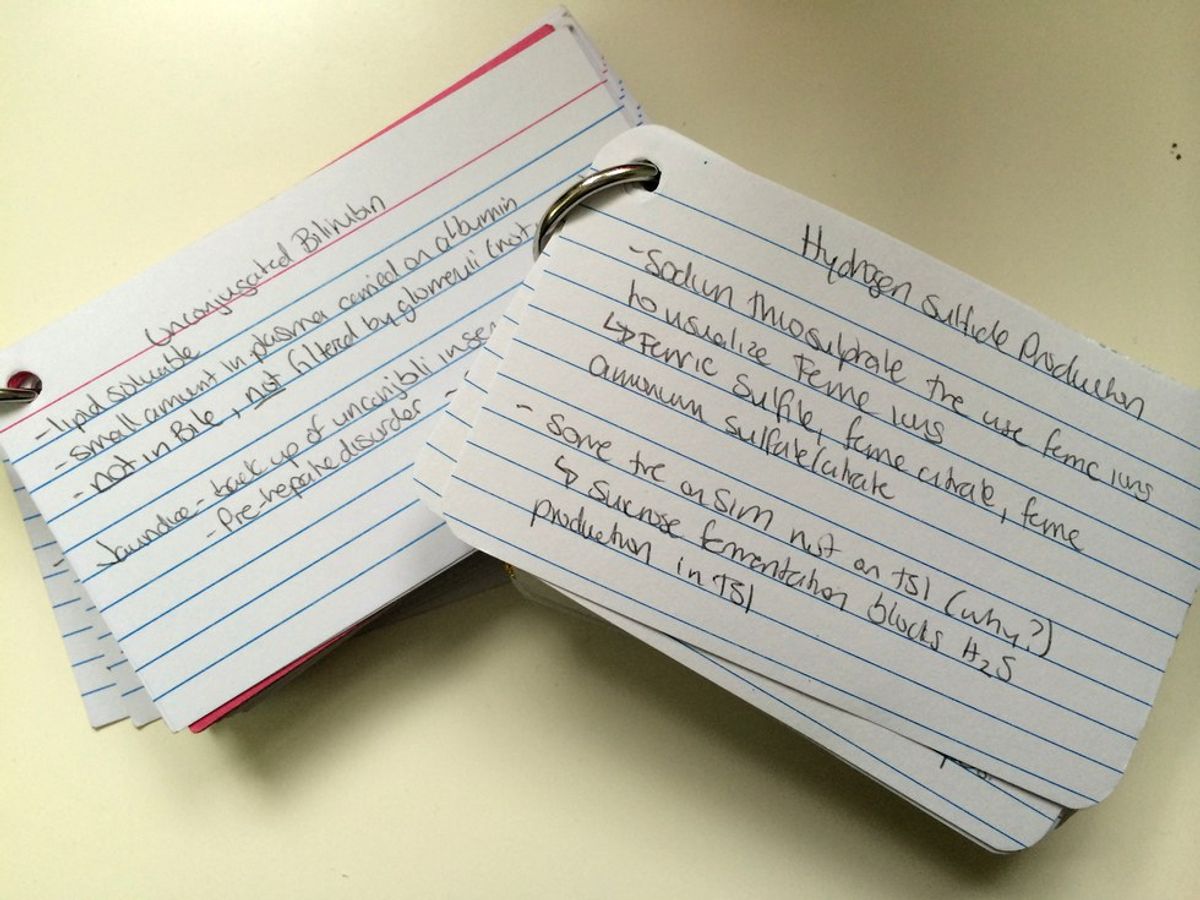 Unconjugated Bilirubin
- lipid soluble
- small amount in plasma carried on albumin
- not in Bile, not filtered by glomeruli (not
Jaundice - back up of unconj bili in ser
- Pre-hepatic disorder -
Hydrogen Sulfide Production
- Sodium thiosulphate the use ferric ions
to visualize Ferric ions
↳ Ferric Sulfite, ferric citrate, ferric
ammonium sulfate/citrate
- Some +ve on SIM not on TSI (why?)
↳ Sucrose fermentation blocks H₂S
production in TSI